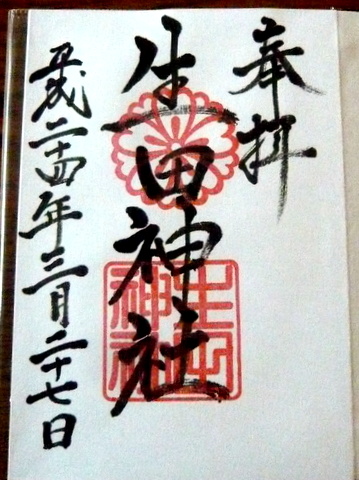 奉拝
生田神社
平成二十四年三月二十七日
生田神社